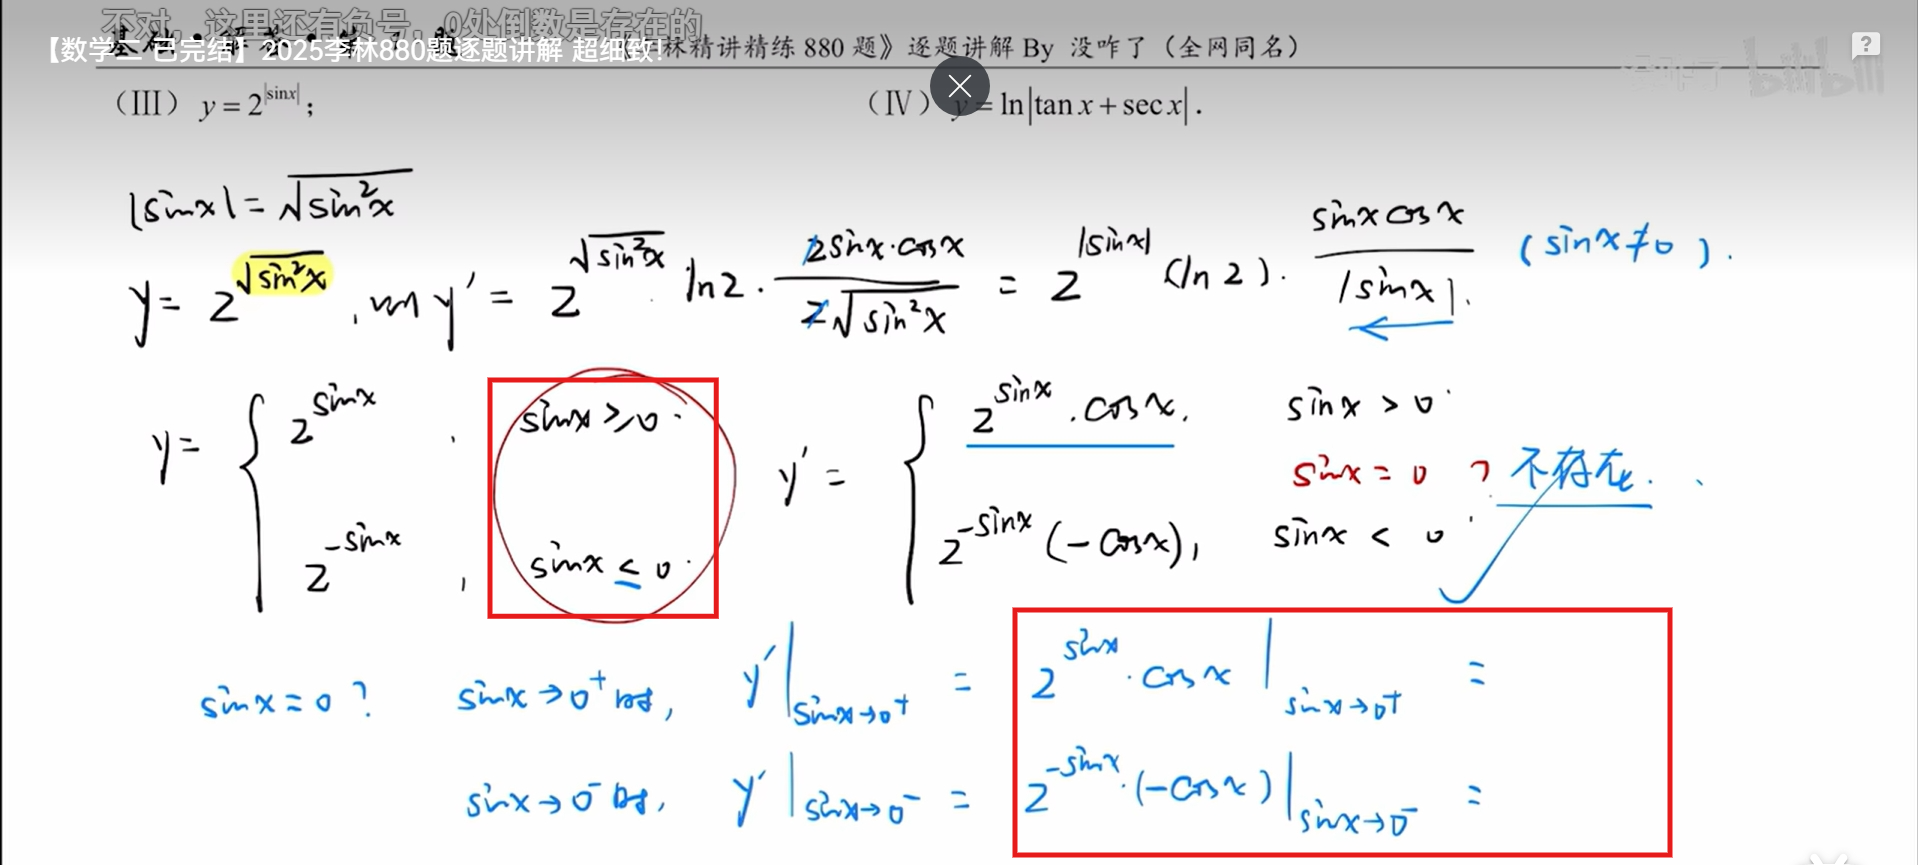 不对，这里还有负号，0处倒数是存在的
【数学二 已完结】2025李林880题逐题讲解 超细致！
林精讲精练 880 题》逐题讲解 By 没咋了（全网同名）
bilibili
（Ⅲ） y = 2^{|sinx|}；
（Ⅳ） y = ln|tan x + sec x|．
|sinx| = √(sin²x)
y = 2^{√(sin²x)}，则 y′ = 2^{√(sin²x)} ln2 · (2sinx·cosx)/(2√(sin²x)) = 2^{|sinx|} (ln 2) · (sinx cosx)/|sinx|. (sinx ≠ 0).
y = { 2^{sinx}, sinx ≥ 0.
2^{-sinx}, sinx ≤ 0.
y′ = { 2^{sinx}·cosx. sinx > 0
sinx = 0 ? 不存在.
2^{-sinx}(-cosx), sinx < 0
sinx = 0 ? sinx→0⁺ 时, y′|_{sinx→0⁺} = 2^{sinx}·cosx|_{sinx→0⁺} =
sinx→0⁻ 时, y′|_{sinx→0⁻} = 2^{-sinx}·(-cosx)|_{sinx→0⁻} =